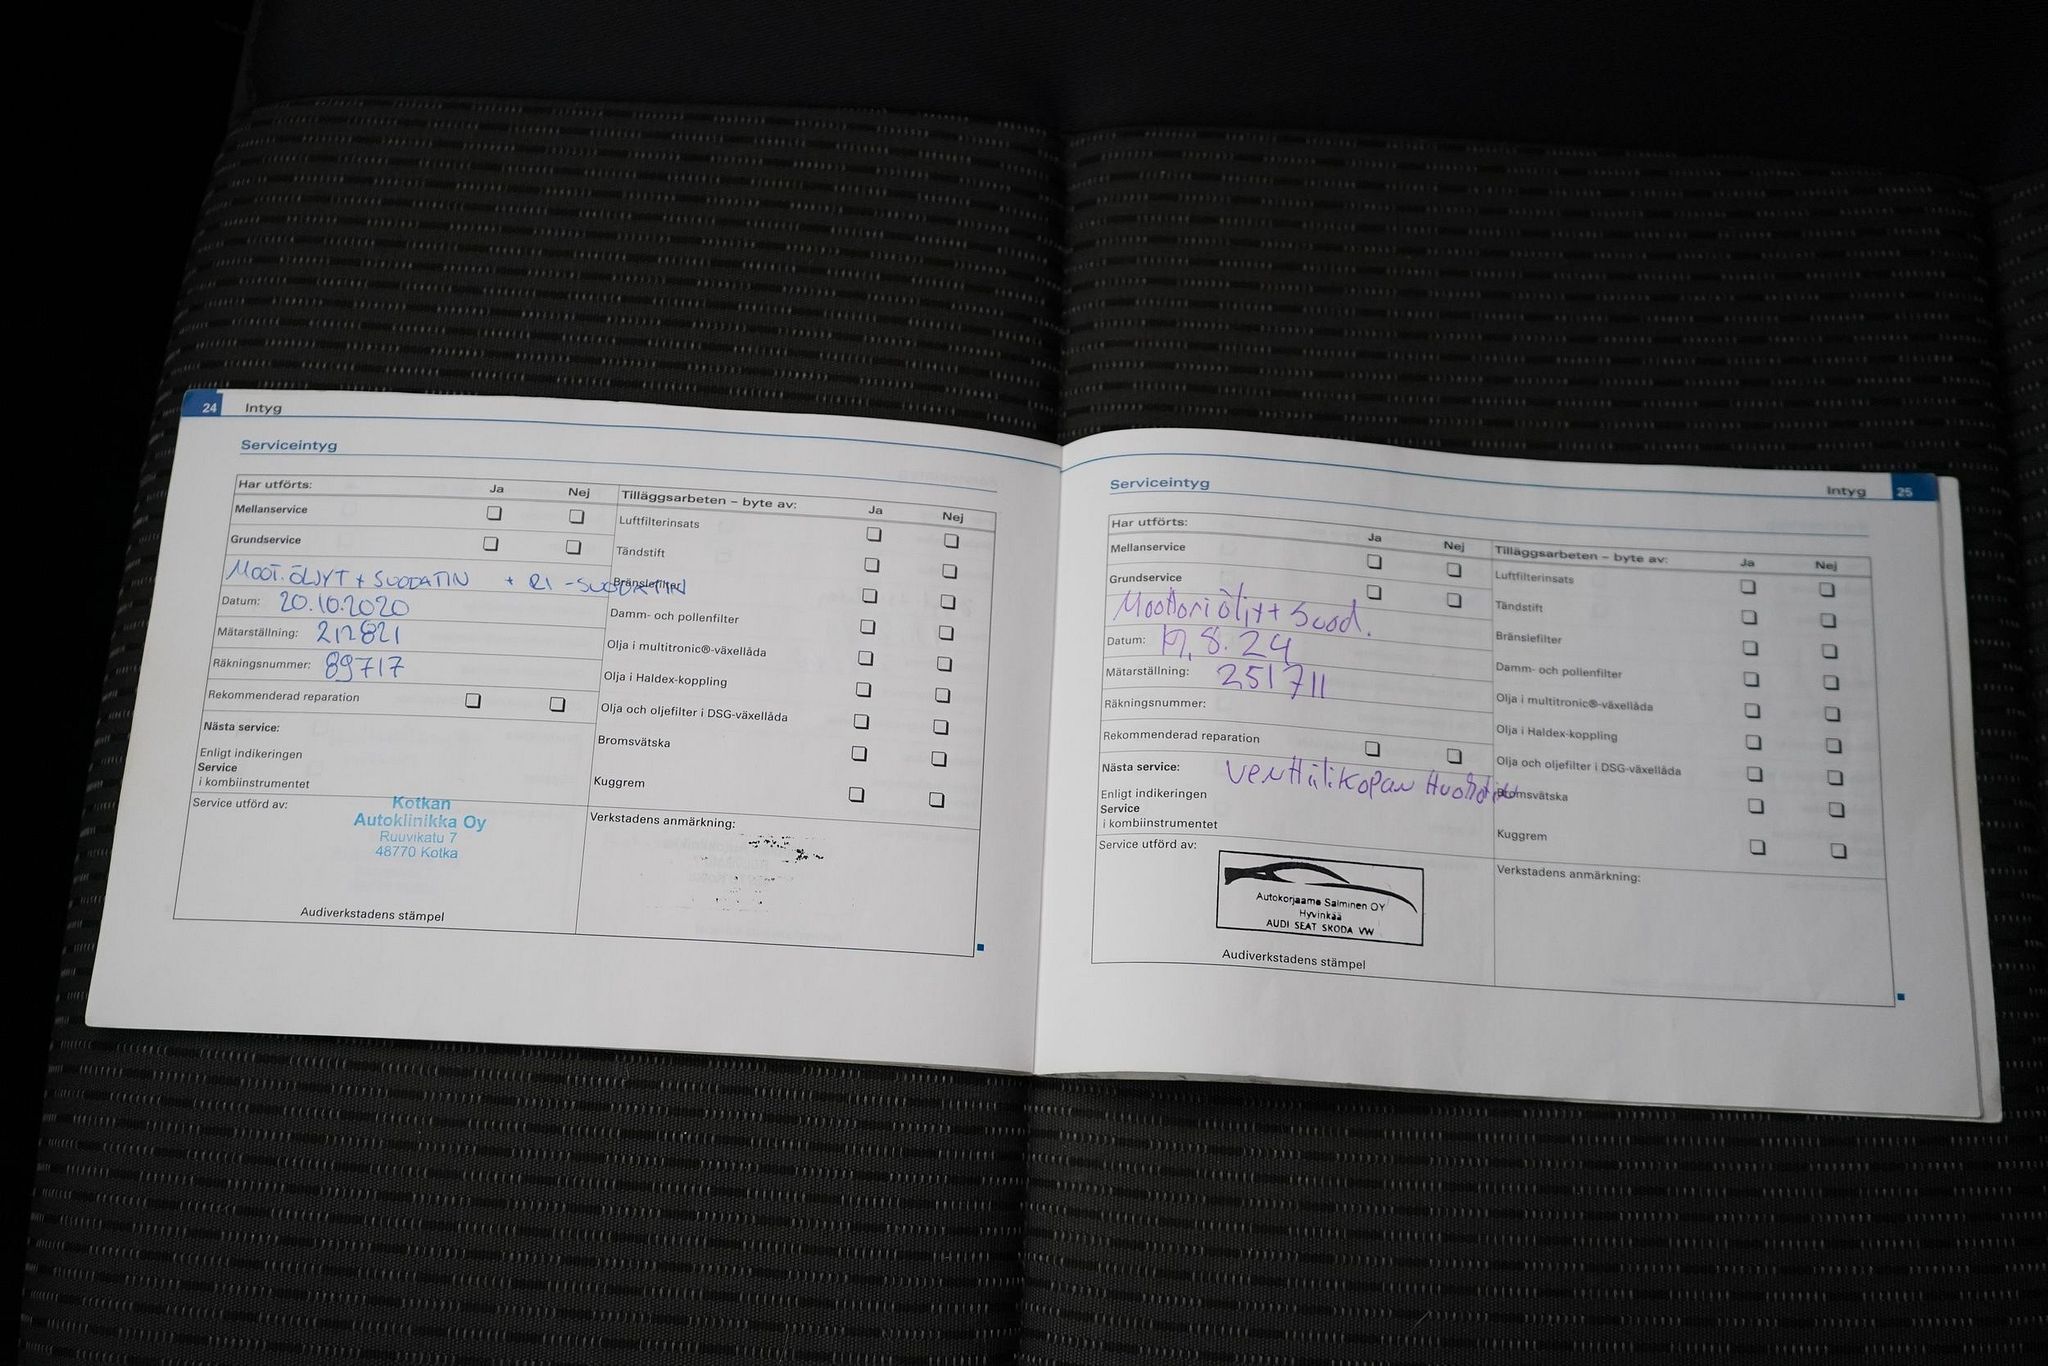 24 Intyg
Serviceintyg
Har utförts: Ja Nej
Mellanservice
Grundservice
MOOT.ÖLJYT + SUODATIN + RI-SUODATIN
Datum: 20.10.2020
Mätarställning: 212821
Räkningsnummer: 89717
Rekommenderad reparation
Nästa service:
Enligt indikeringen
Service
i kombiinstrumentet
Service utförd av:
Kotkan
Autoklinikka Oy
Ruuvikatu 7
48770 Kotka
Audiverkstadens stämpel
Tilläggsarbeten – byte av: Ja Nej
Luftfilterinsats
Tändstift
Bränslefilter
Damm- och pollenfilter
Olja i multitronic®-växellåda
Olja i Haldex-koppling
Olja och oljefilter i DSG-växellåda
Bromsvätska
Kuggrem
Verkstadens anmärkning:
Intyg 25
Serviceintyg
Har utförts: Ja Nej
Mellanservice
Grundservice
Moottoriöljyt + Suod.
Datum: 8.24
Mätarställning: 251711
Räkningsnummer:
Rekommenderad reparation
Nästa service: Venttiilikopan
Enligt indikeringen
Service
i kombiinstrumentet
Service utförd av:
Autokorjaamo Salminen OY
Hyvinkää
AUDI SEAT SKODA VW
Audiverkstadens stämpel
Tilläggsarbeten – byte av: Ja Nej
Luftfilterinsats
Tändstift
Bränslefilter
Damm- och pollenfilter
Olja i multitronic®-växellåda
Olja i Haldex-koppling
Olja och oljefilter i DSG-växellåda
Bromsvätska
Kuggrem
Verkstadens anmärkning: